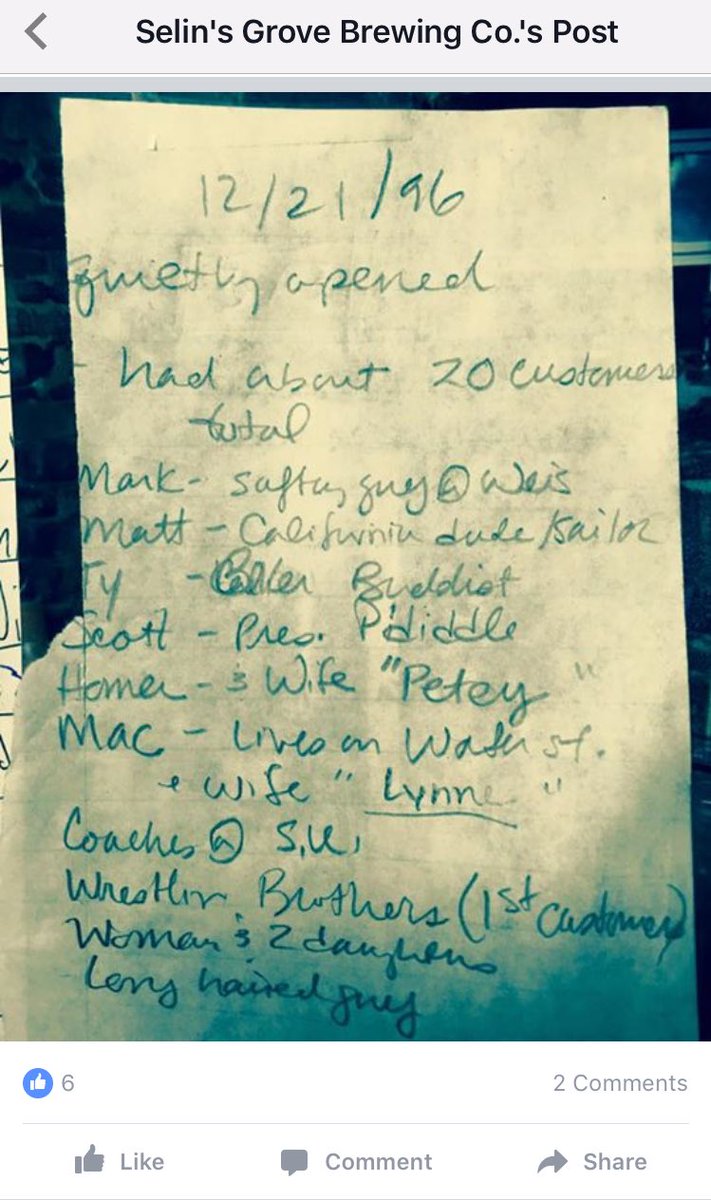 Selin's Grove Brewing Co.'s Post
12/21/96
quietly opened
- had about 20 customers
total
Mark- safty guy @ Weis
Matt - California dude/sailor
Ty - Buddist
Scott - Pres. P'diddle
Homer - & Wife "Petey"
Mac - Lives on Water st.
+ wife "Lynne"
Coaches @ S.U.
Wrestlin Brothers (1st customers)
Woman & 2 daughters
Long haired guy
6
2 Comments
Like
Comment
Share